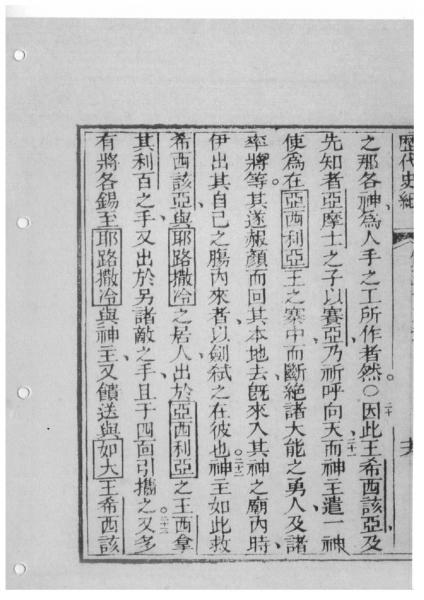 歷代史紀
之那各神為人手之工所作者然○因此王希西該亞及
二十
先知者亞摩士之子以賽亞乃祈呼向天而神主遣一神
二十一
使為在亞西利亞王之寨中而斷絕諸大能之勇人及諸
率將等其遂赧顏而回其本地去旣來入其神之廟內時
伊出其自己之膓內來者以劍弒之在彼也神主如此救
二十二
希西該亞與耶路撒冷之居人出於亞西利亞之王西拿
其利百之手又出於另諸敵之手且于四面引攜之又多
二十三
有將各錫至耶路撒冷與神主又饋送與如大王希西該